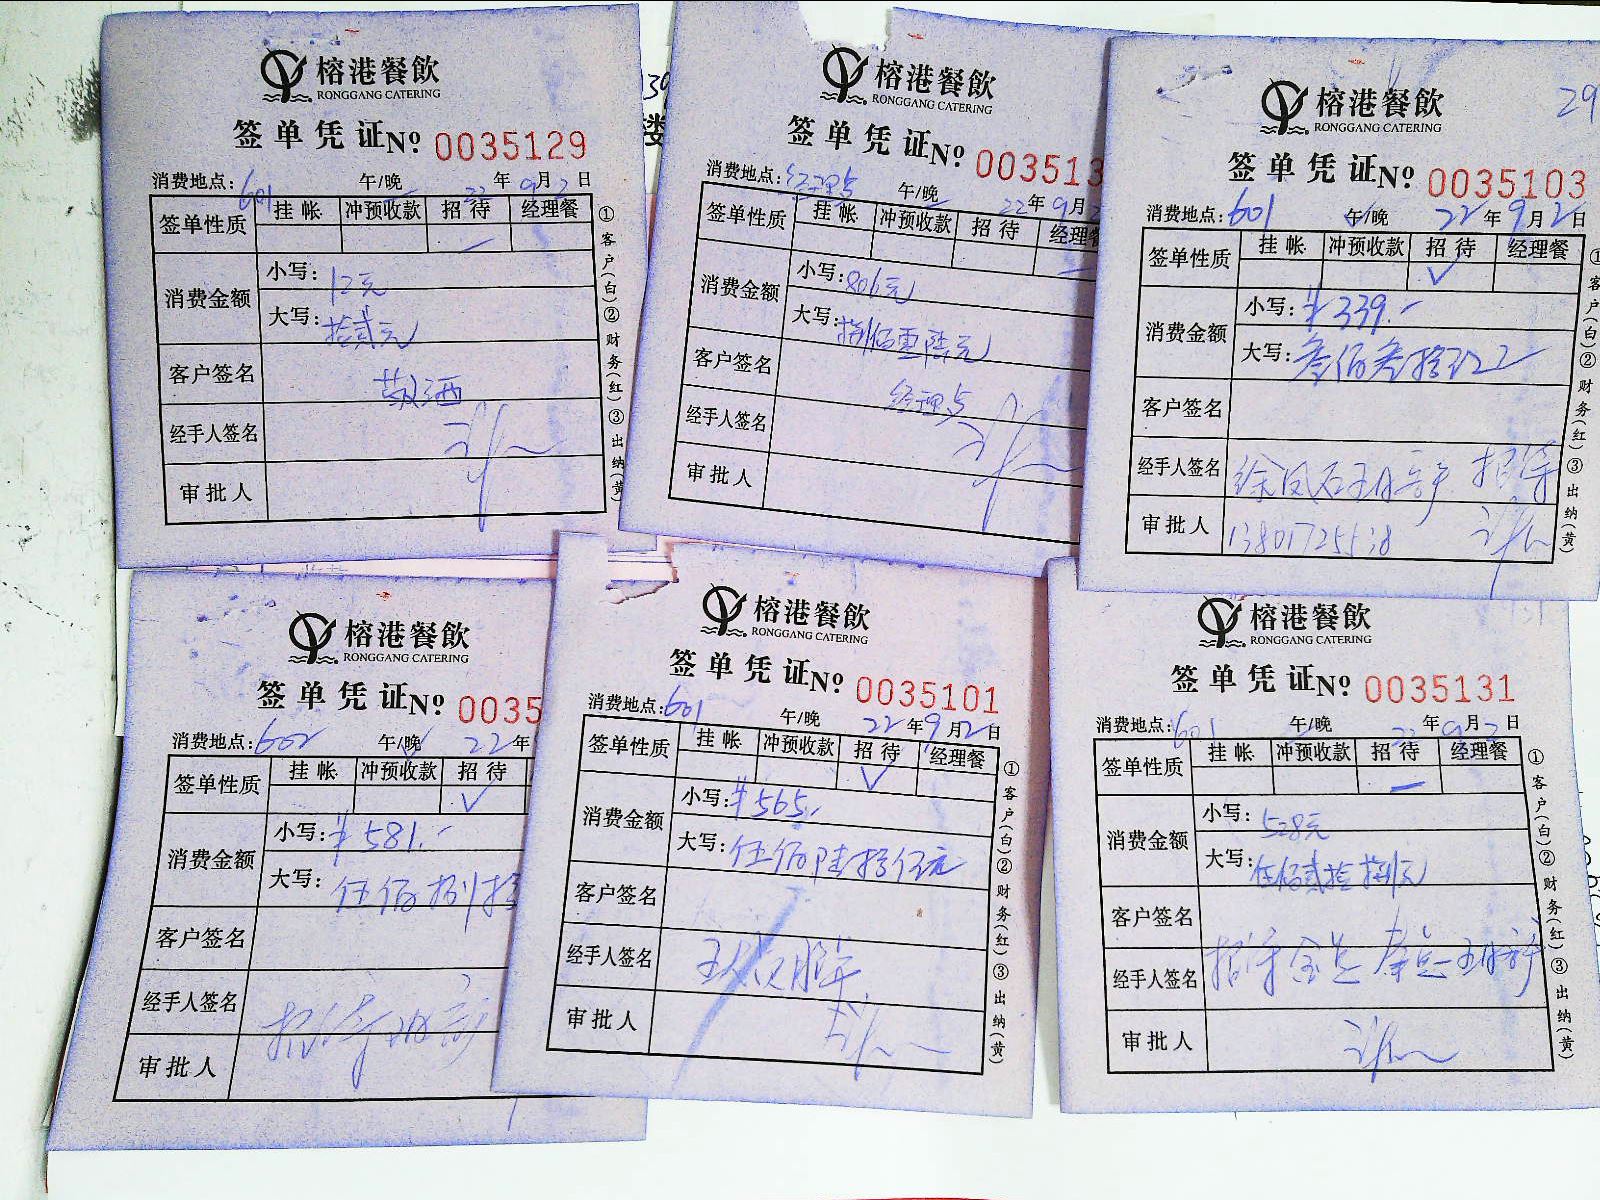 榕港餐飲
RONGGANG CATERING
签单凭证 № 0035129
消费地点: 601 午/晚 22 年 9 月 2 日
签单性质 挂帐 冲预收款 招待 经理餐
消费金额 小写: 12元
大写: 拾贰元
客户签名
经手人签名
审批人
①客户(白)②财务(红)③出纳(黄)
榕港餐飲
RONGGANG CATERING
签单凭证 № 003513
消费地点: 经理点 午/晚 22 年 9 月
签单性质 挂帐 冲预收款 招待 经理餐
消费金额 小写: 806元
大写: 捌佰零陆元
客户签名 经理点
经手人签名
审批人
29
榕港餐飲
RONGGANG CATERING
签单凭证 № 0035103
消费地点: 601 午/晚 22 年 9 月 2 日
签单性质 挂帐 冲预收款 招待 经理餐
✓
消费金额 小写: ¥339.-
大写: 叁佰叁拾玖元
客户签名
经手人签名 招待
审批人 13801725538
①客户(白)②财务(红)③出纳(黄)
榕港餐飲
RONGGANG CATERING
签单凭证 № 0035
消费地点: 602 午/晚 22 年
签单性质 挂帐 冲预收款 招待
✓
消费金额 小写: ¥581.-
大写: 伍佰捌拾
客户签名
经手人签名 招待
审批人
榕港餐飲
RONGGANG CATERING
签单凭证 № 0035101
消费地点: 601 午/晚 22 年 9 月 2 日
签单性质 挂帐 冲预收款 招待 经理餐
✓
消费金额 小写: ¥565.-
大写: 伍佰陆拾伍元
客户签名
经手人签名
审批人
①客户(白)②财务(红)③出纳(黄)
榕港餐飲
RONGGANG CATERING
签单凭证 № 0035131
消费地点: 601 午/晚 22 年 9 月 2 日
签单性质 挂帐 冲预收款 招待 经理餐
消费金额 小写: 528元
大写: 伍佰贰拾捌元
客户签名
经手人签名 招待
审批人
①客户(白)②财务(红)③出纳(黄)